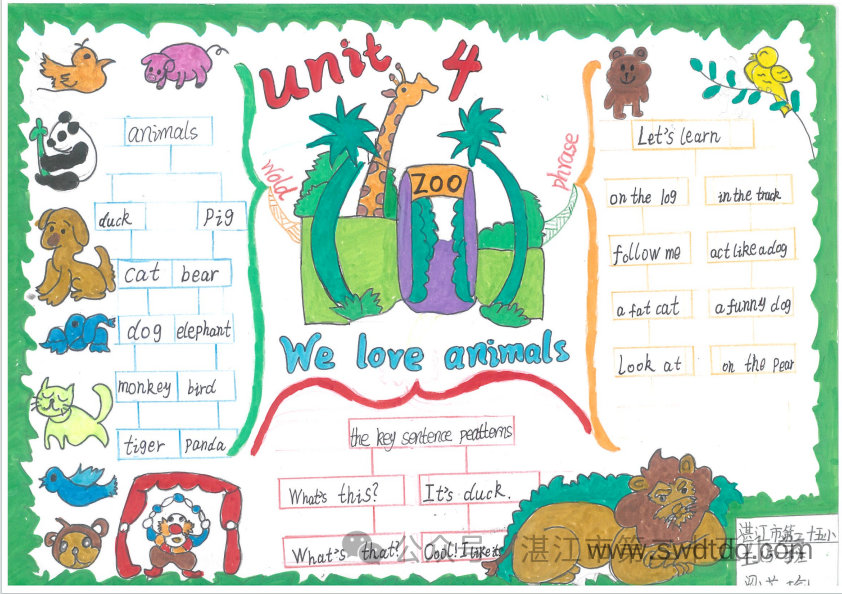 unit 4
wold
phrase
ZOO
We love animals
animals
duck
Pig
cat bear
dog elephant
monkey bird
tiger panda
Let's learn
on the log
in the truck
follow me
act like a dog
a fat cat
a funny dog
Look at
on the pear
the key sentence
What's this?
It's duck.
What's that?
Cool! I like
公众号
湛江市第
湛江市第二十五小
www.swdtdq.com
班